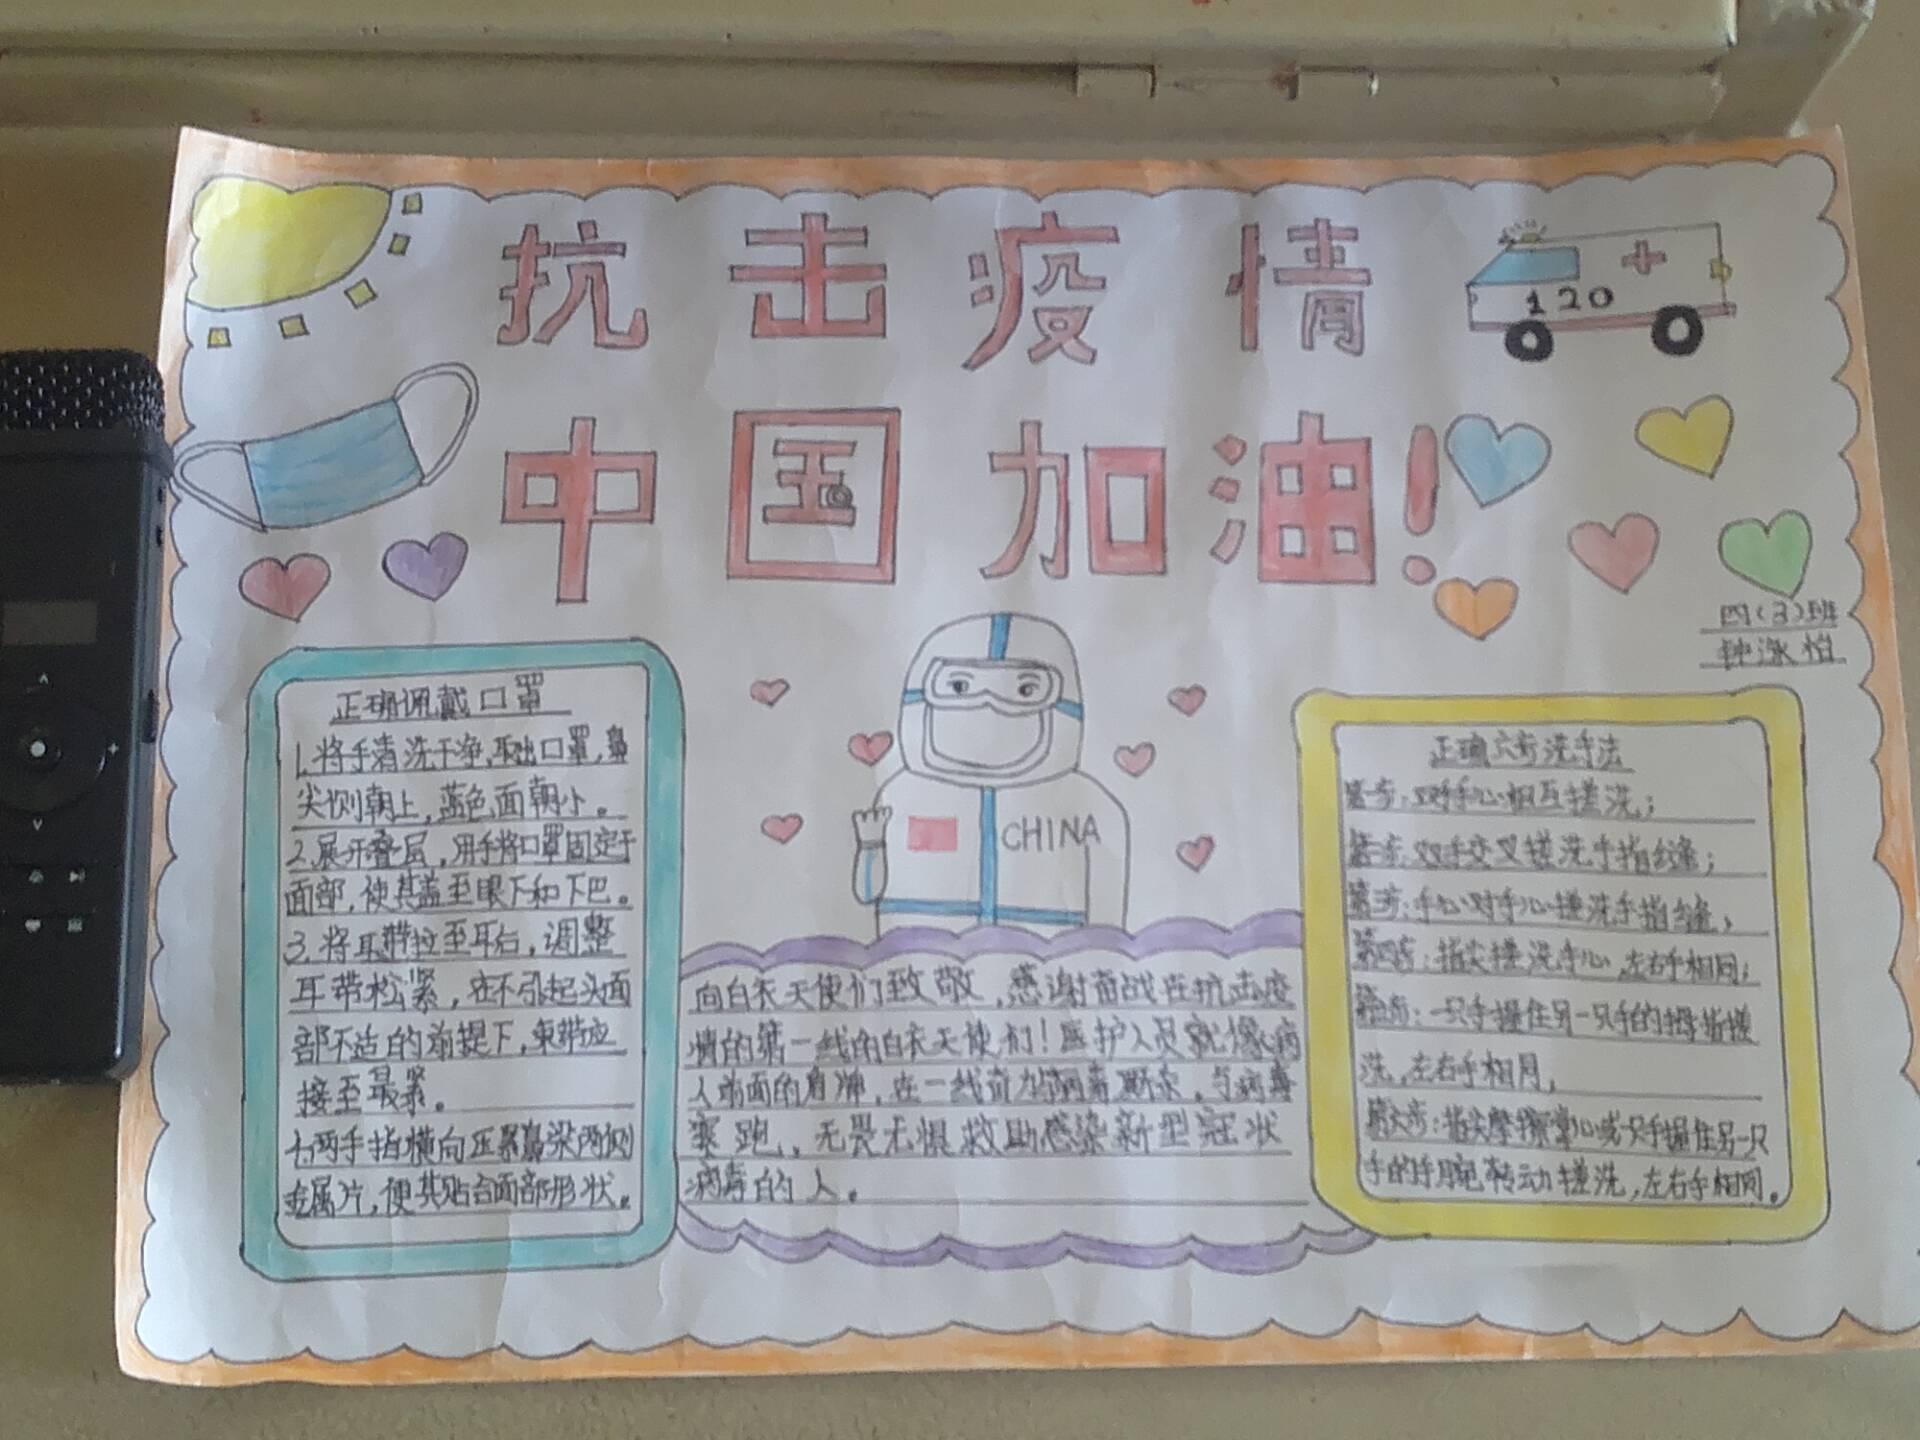 抗击疫情
120
中国加油!
四(3)班
钟泳怡
正确佩戴口罩
1.将手清洗干净,取出口罩,鼻
尖侧朝上,蓝色面朝外。
2.展开叠层,用手将口罩固定于
面部,使其盖至眼下和下巴。
3.将耳带拉至耳后,调整
耳带松紧,在不引起头面
部不适的前提下,束带应
接至最紧。
七两手指横向压紧鼻梁两侧
金属片,使其贴合面部形状。
CHINA
向白衣天使们致敬,感谢奋战在抗击疫
情的第一线的白衣天使们!医护人员就像病
人的守护神,在一线奋力,与病毒
赛跑,无畏无惧救助感染新型冠状
病毒的人。
正确六步洗手法
第一步:双手手心相互搓洗;
第二步:双手交叉搓洗手指缝;
第三步:手心对手心搓洗手指缝,
第四步:指尖搓洗手心,左右手相同;
第五步:一只手握住另一只手的拇指搓
洗,左右手相同,
第六步:指尖摩擦掌心或一只手握住另一只
手的手腕转动搓洗,左右手相同。